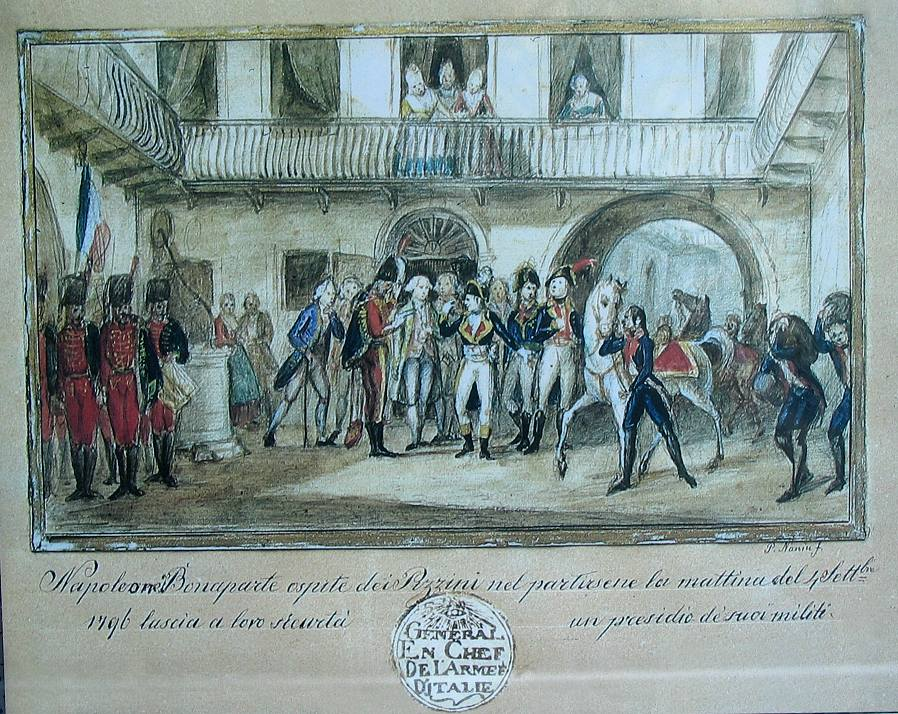 P. Nanin f.
Napoleone Bonaparte ospite dei Pizzini nel partirsene la mattina del 4 Settbre
1796 lascia a loro sicurtà un presidio de' suoi militi.
GENERAL
EN CHEF
DE L'ARMEE
D'ITALIE